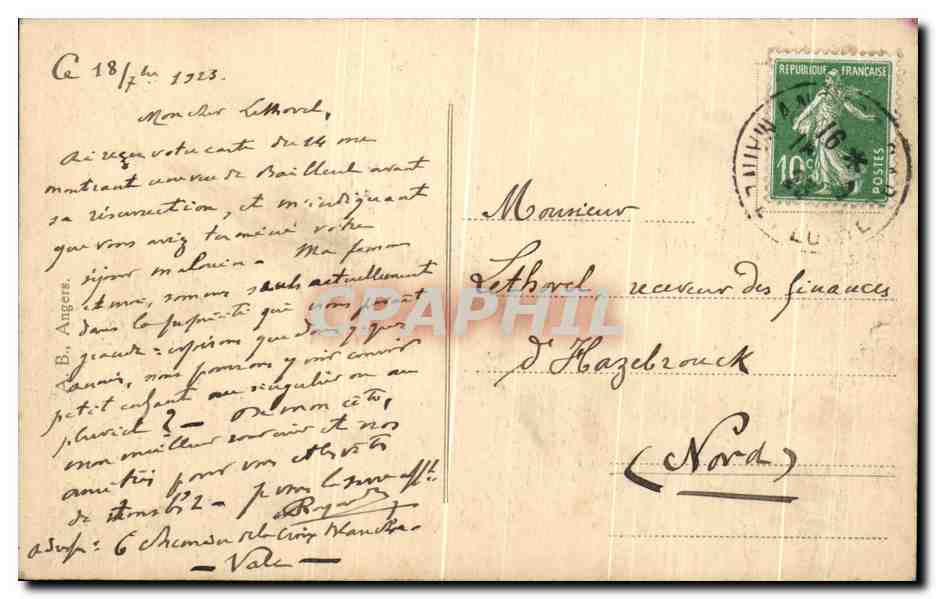 Ce 18/7bre 1923.
Mon cher Lethorel,
Ai reçu votre carte du 14 me
montrant une vue de Bailleul avant
sa résurrection, et m'indiquant
que vous avez terminé votre
séjour malouin. Ma femme
et moi, sommes seuls actuellement
dans la propriété que nous
grande = espérons que dans quelques
années, nous pourrons y voir courir
petit enfant au singulier ou au
pluriel ? - De mon côté,
mon meilleur souvenir et nos
amitiés pour vous et
de - pour
6 Chemin de la Croix Blanche
- -
B., Angers.
REPUBLIQUE FRANÇAISE
10c
POSTES
16
Monsieur
Lethorel, receveur des finances
d'Hazebrouck
(Nord)
CPAPHIL